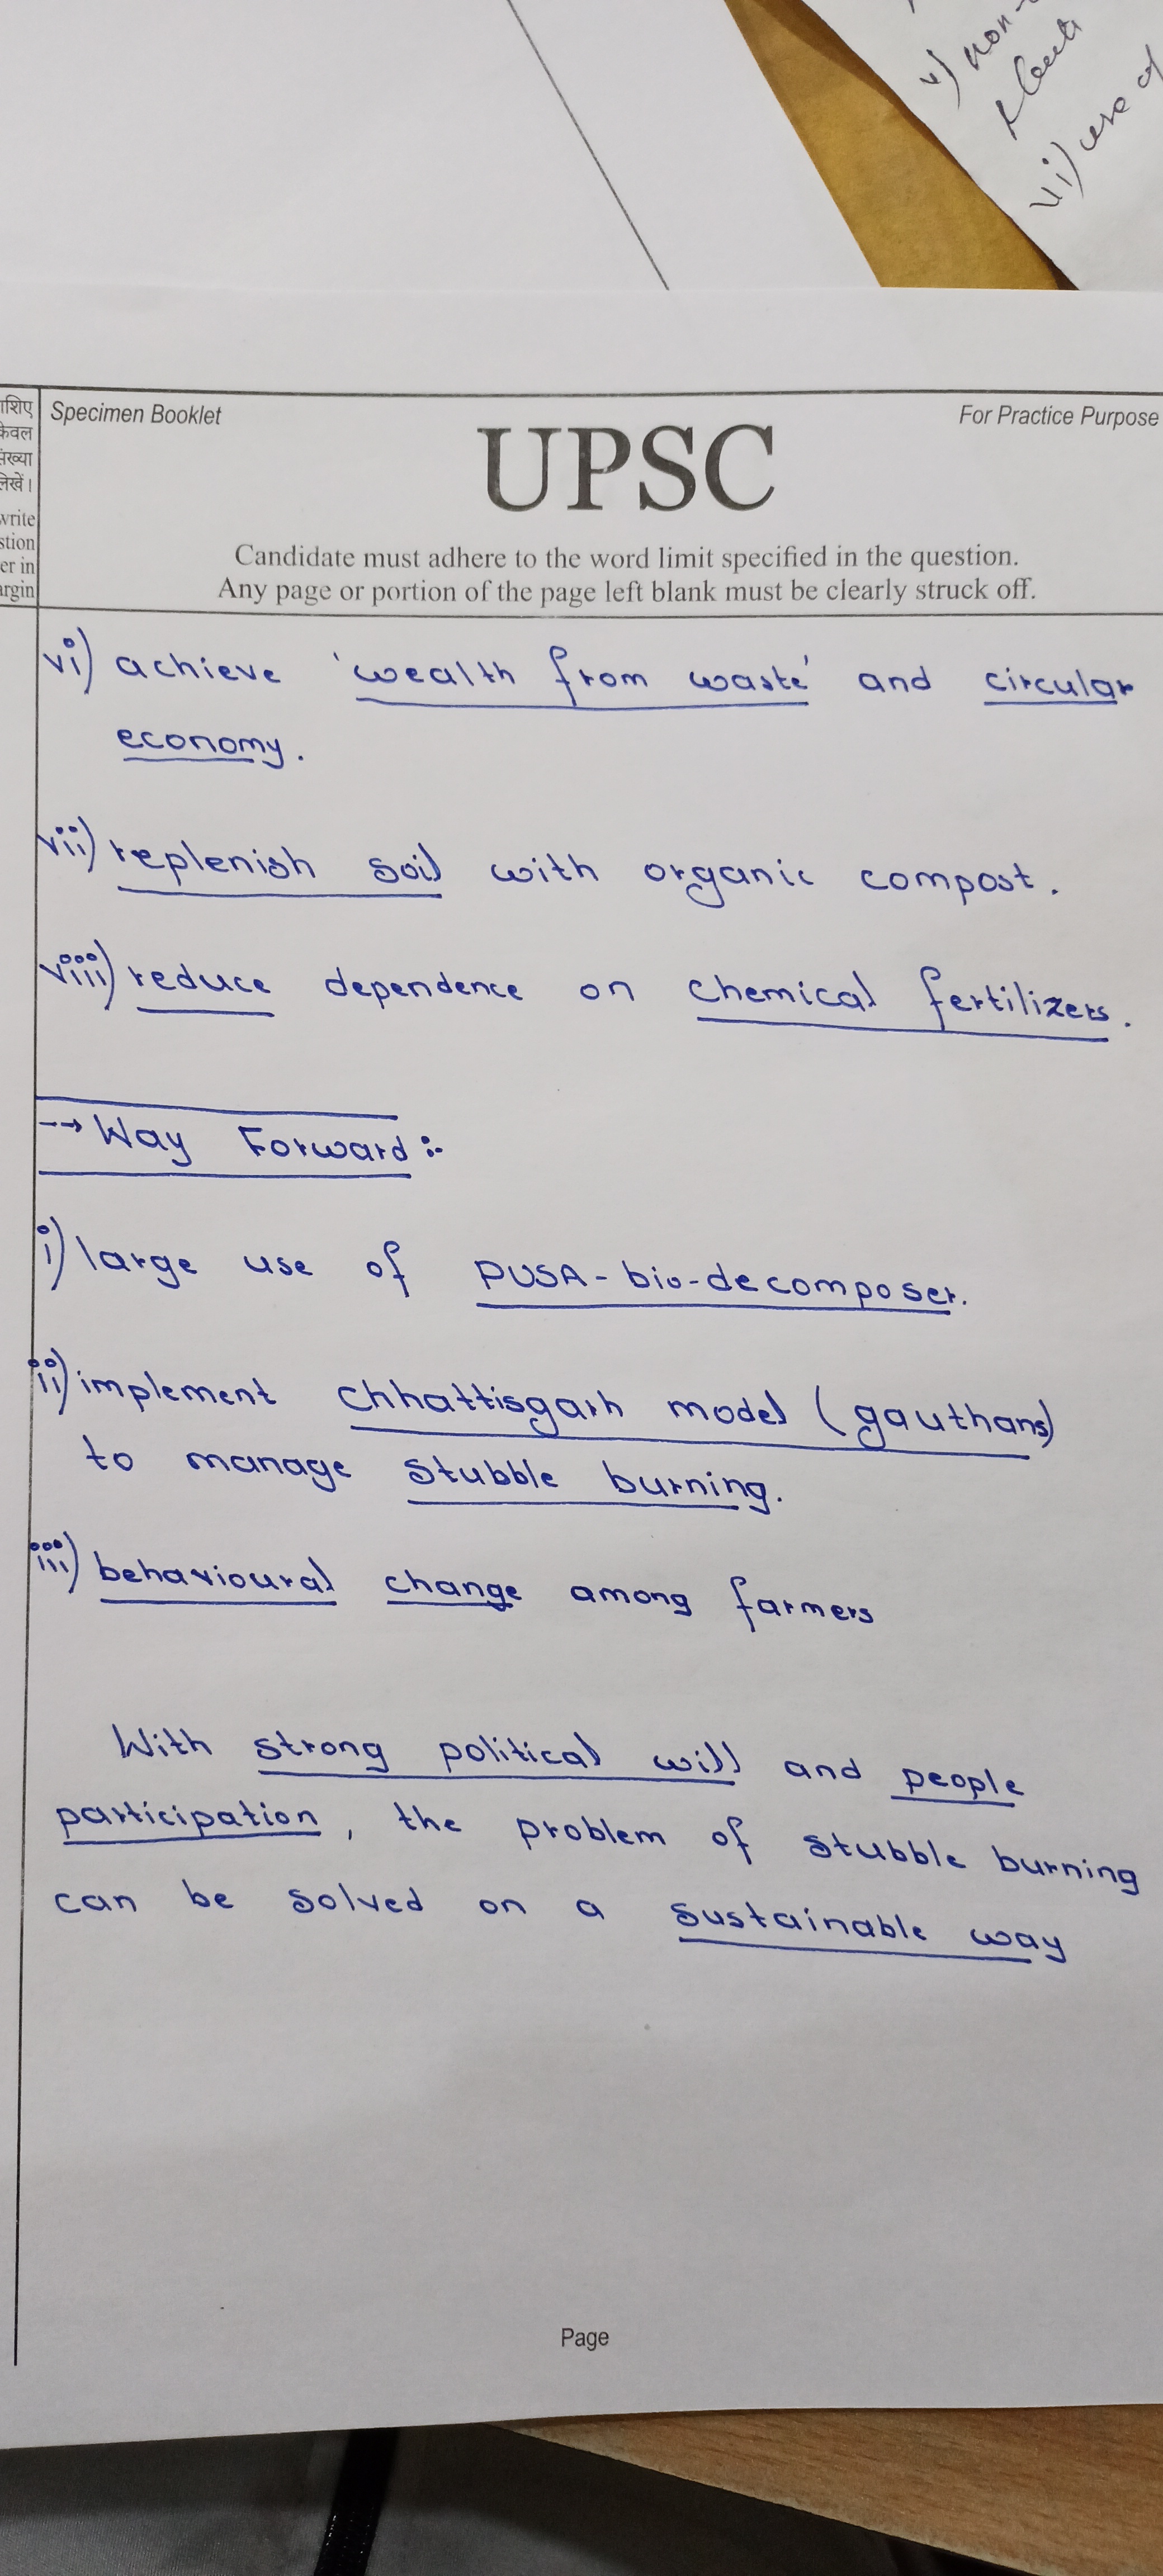 v) non-
vi) use of
ाशिए
केवल
संख्या
लिखें।
write
stion
er in
argin
Specimen Booklet
For Practice Purpose
UPSC
Candidate must adhere to the word limit specified in the question.
Any page or portion of the page left blank must be clearly struck off.
vi) achieve 'wealth from waste' and circular
economy.
vii) replenish soil with organic compost.
viii) reduce dependence on chemical fertilizers.
→ Way Forward :-
i) large use of PUSA-bio-decomposer.
ii) implement chhattisgarh model (gauthans)
to manage stubble burning.
iii) behavioural change among farmers
With strong political will and people
participation, the problem of stubble burning
can be solved on a sustainable way
Page